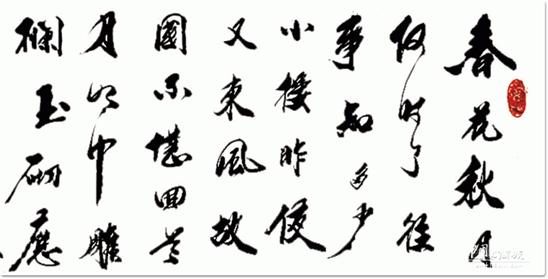 春花秋月
何时了往
事知多少
小樓昨夜
又東風故
國不堪回首
月明中雕
欄玉砌應